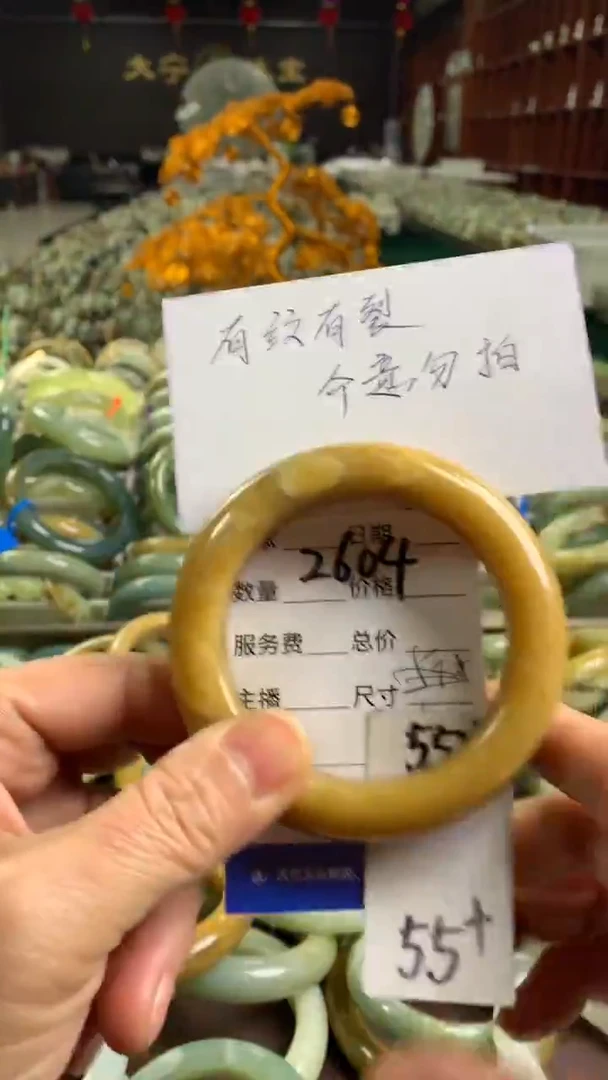 有纹有裂
介意勿拍
日期
2604
数量 价格
服务费 总价
主播 尺寸
55
55+